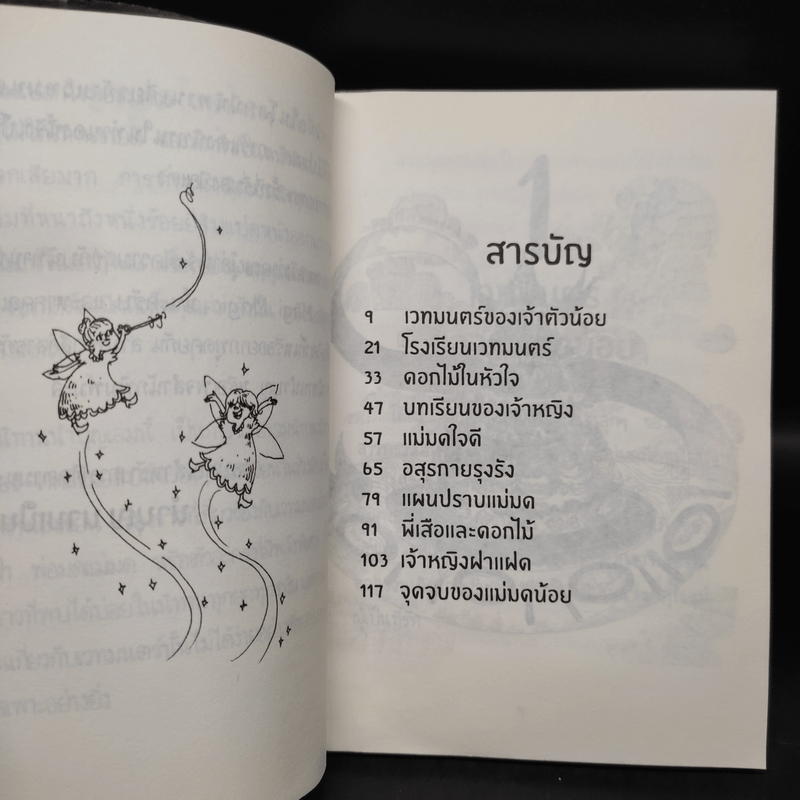 สารบัญ
9 เวทมนตร์ของเจ้าตัวน้อย
21 โรงเรียนเวทมนตร์
33 ดอกไม้ในหัวใจ
47 บทเรียนของเจ้าหญิง
57 แม่มดใจดี
65 อสุรกายรุงรัง
79 แผนปราบแม่มด
91 พี่เสือและดอกไม้
103 เจ้าหญิงฝาแฝด
117 จุดจบของแม่มดน้อย